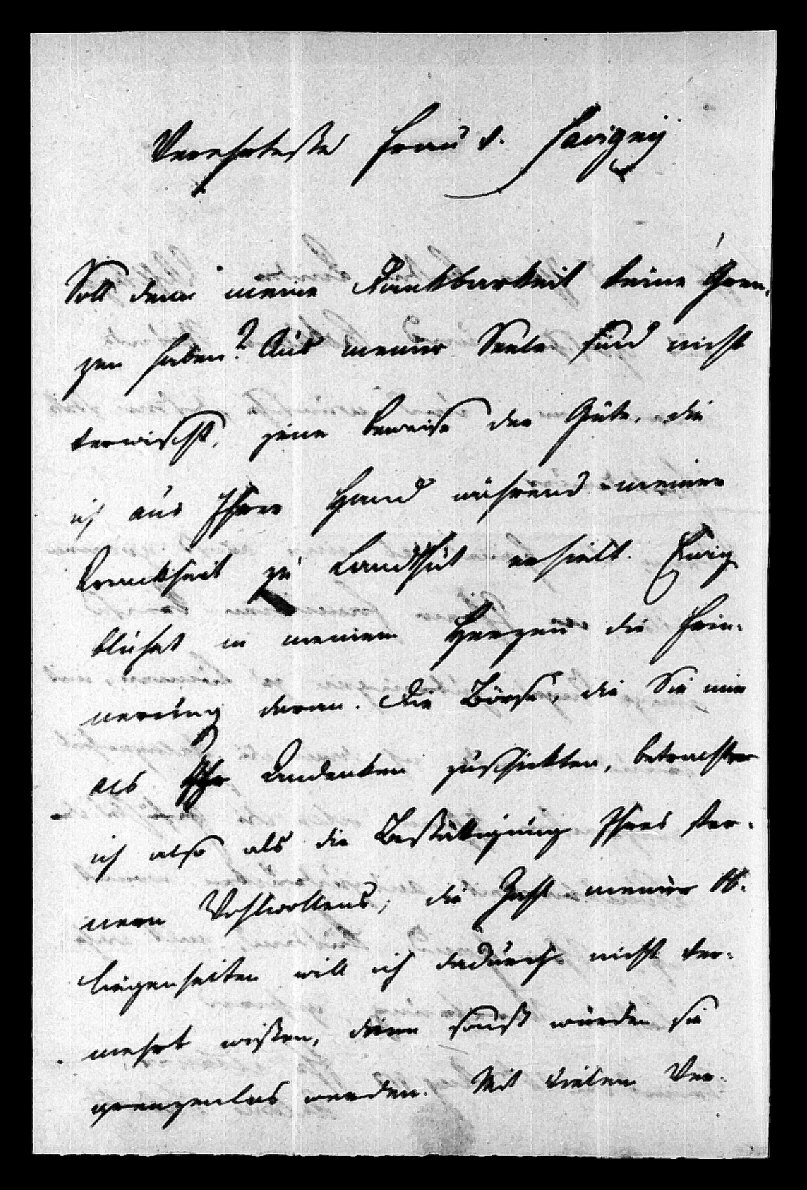 Verehrteste Frau v. Savigny
Soll denn meine Dankbarkeit keine Gren-
zen haben? Aus meiner Seele sind nicht
verwischt, jene Beweise der Güte, die
ich aus Ihrer Hand während meiner
Krankheit zu Landshut erhielt. Ewig
blühet in meinem Herzen die Erin-
nerung daran. Die Börse, die Sie mir
als Ihr Andenken zuschickten, betrachte
ich also als die Bestätigung Ihres fer-
nern Wohlwollens; die Zahl meiner Ob-
liegenheiten will ich dadurch nicht ver-
mehrt wissen, denn sonst würden sie
grenzenlos werden. Mit vielem Ver-